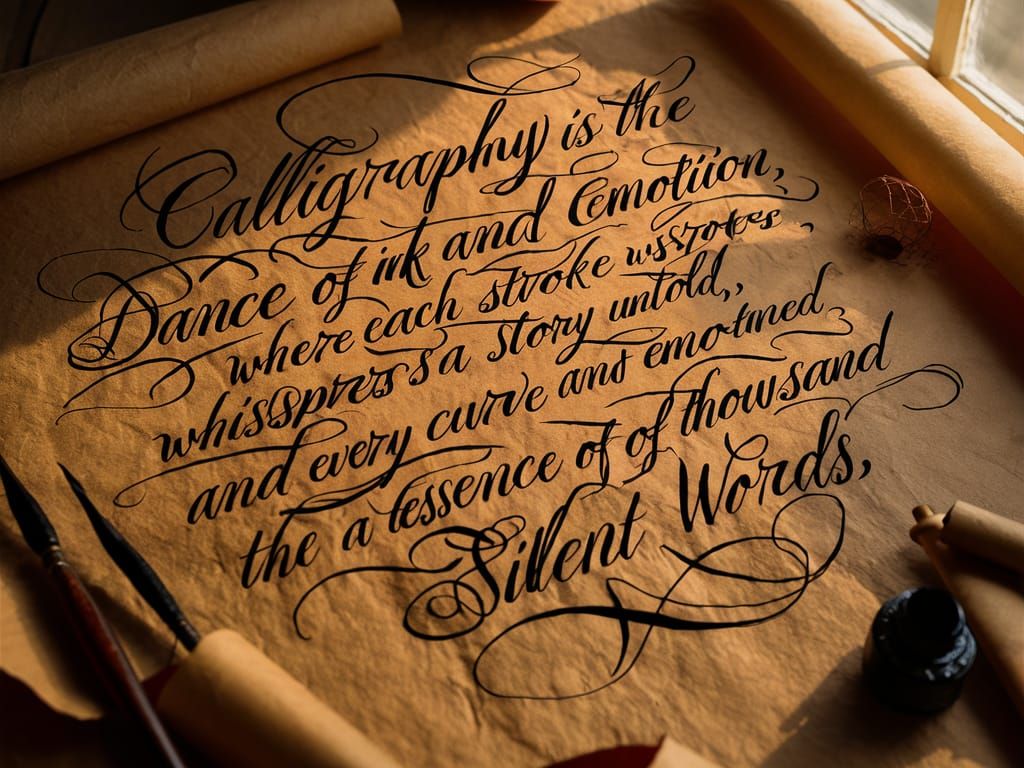 Calligraphy is the
Dance of ink and Emotiion,
where each stroke wsstrotes
whisspers's a story untold,,
and every curve and emo-tined
the a essence of of thowsand
Sillent Words,